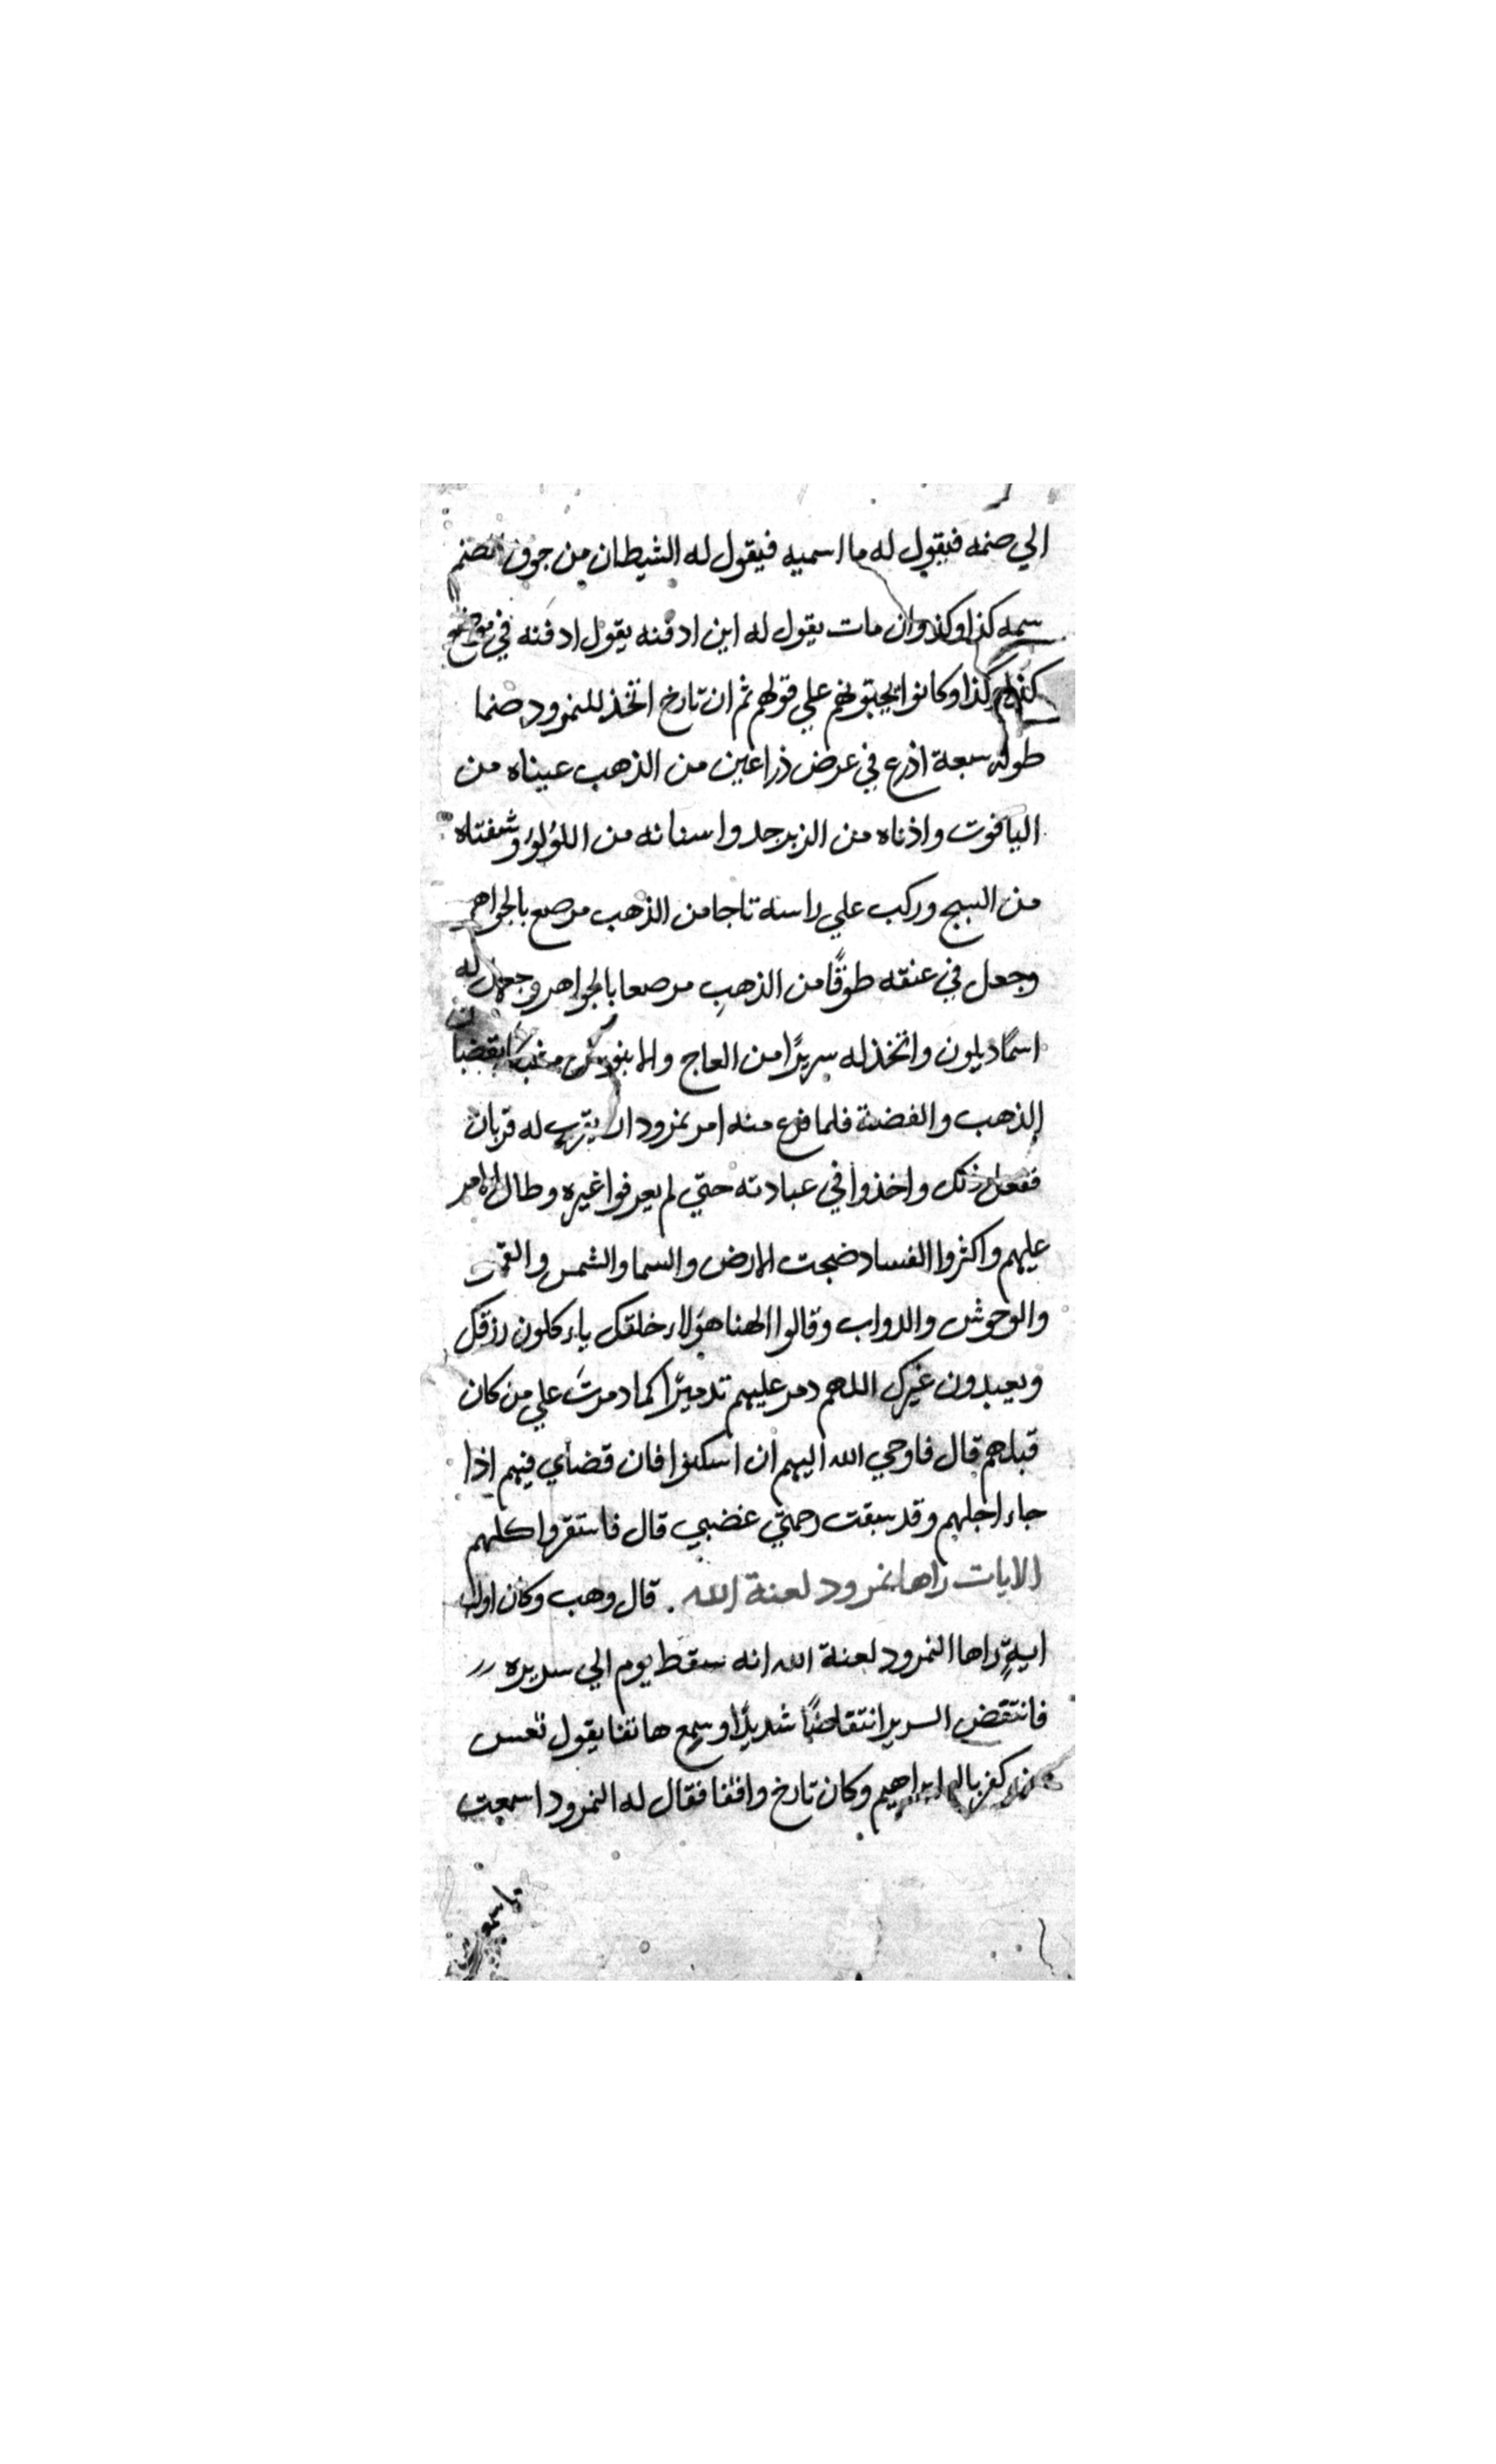 الي صنمه فيقول له ما اسميه فيقول له الشيطان من جوف الصنم
سمه كذا وكذا وان مات يقول له اين ادفنه يقول ادفنه في موضع
كذا وكذا وكانوا يجيبونهم علي قولهم ثم ان تارخ اتخذ للنمرود صنما
طوله سبعة اذرع في عرض ذراعين من الذهب عيناه من
الياقوت واذناه من الزبرجد واسنانه من اللؤلؤ وشفتاه
من السبج وركب علي راسه تاجا من الذهب مرصع بالجواهر
وجعل في عنقه طوقًا من الذهبِ مرصعا بالجواهر وجعل له
اسمًا ديلون واتخذ له سريرًا من العاج والابنوس بقضبان
الذهب والفضة فلما فرغ منه امر نمرود ان يقرب له قربان
ففعل ذلك واخذوا في عبادته حتي لم يعرفوا غيره وطال الامر
عليهم واكثروا الفساد ضجت الارض والسما والشمس والقمر
والوحوش والدواب وقالوا الهنا هؤلاء خلقك ياءكلون رزقك
ويعبدون غيرك اللهم دمر عليهم تدميرًا كما دمرتَ علي من كان
قبلهم قال فاوحي الله اليهم ان اسكنوا فان قضاي فيهم اذا
جاء اجلهم وقد سبقت رحمتي غضبي قال فاستقروا كلهم
الايات راها نمرود لعنة الله . قال وهب وكان اول
ايةٍ راها النمرود لعنة الله انه سقط يوم الي سريره
فانتقض السرير انتقاضًا شديدًا وسمع هاتفا يقول تعس
من كفر باله ابراهيم وكان تارخ واقفا فقال له النمرود اسمعت